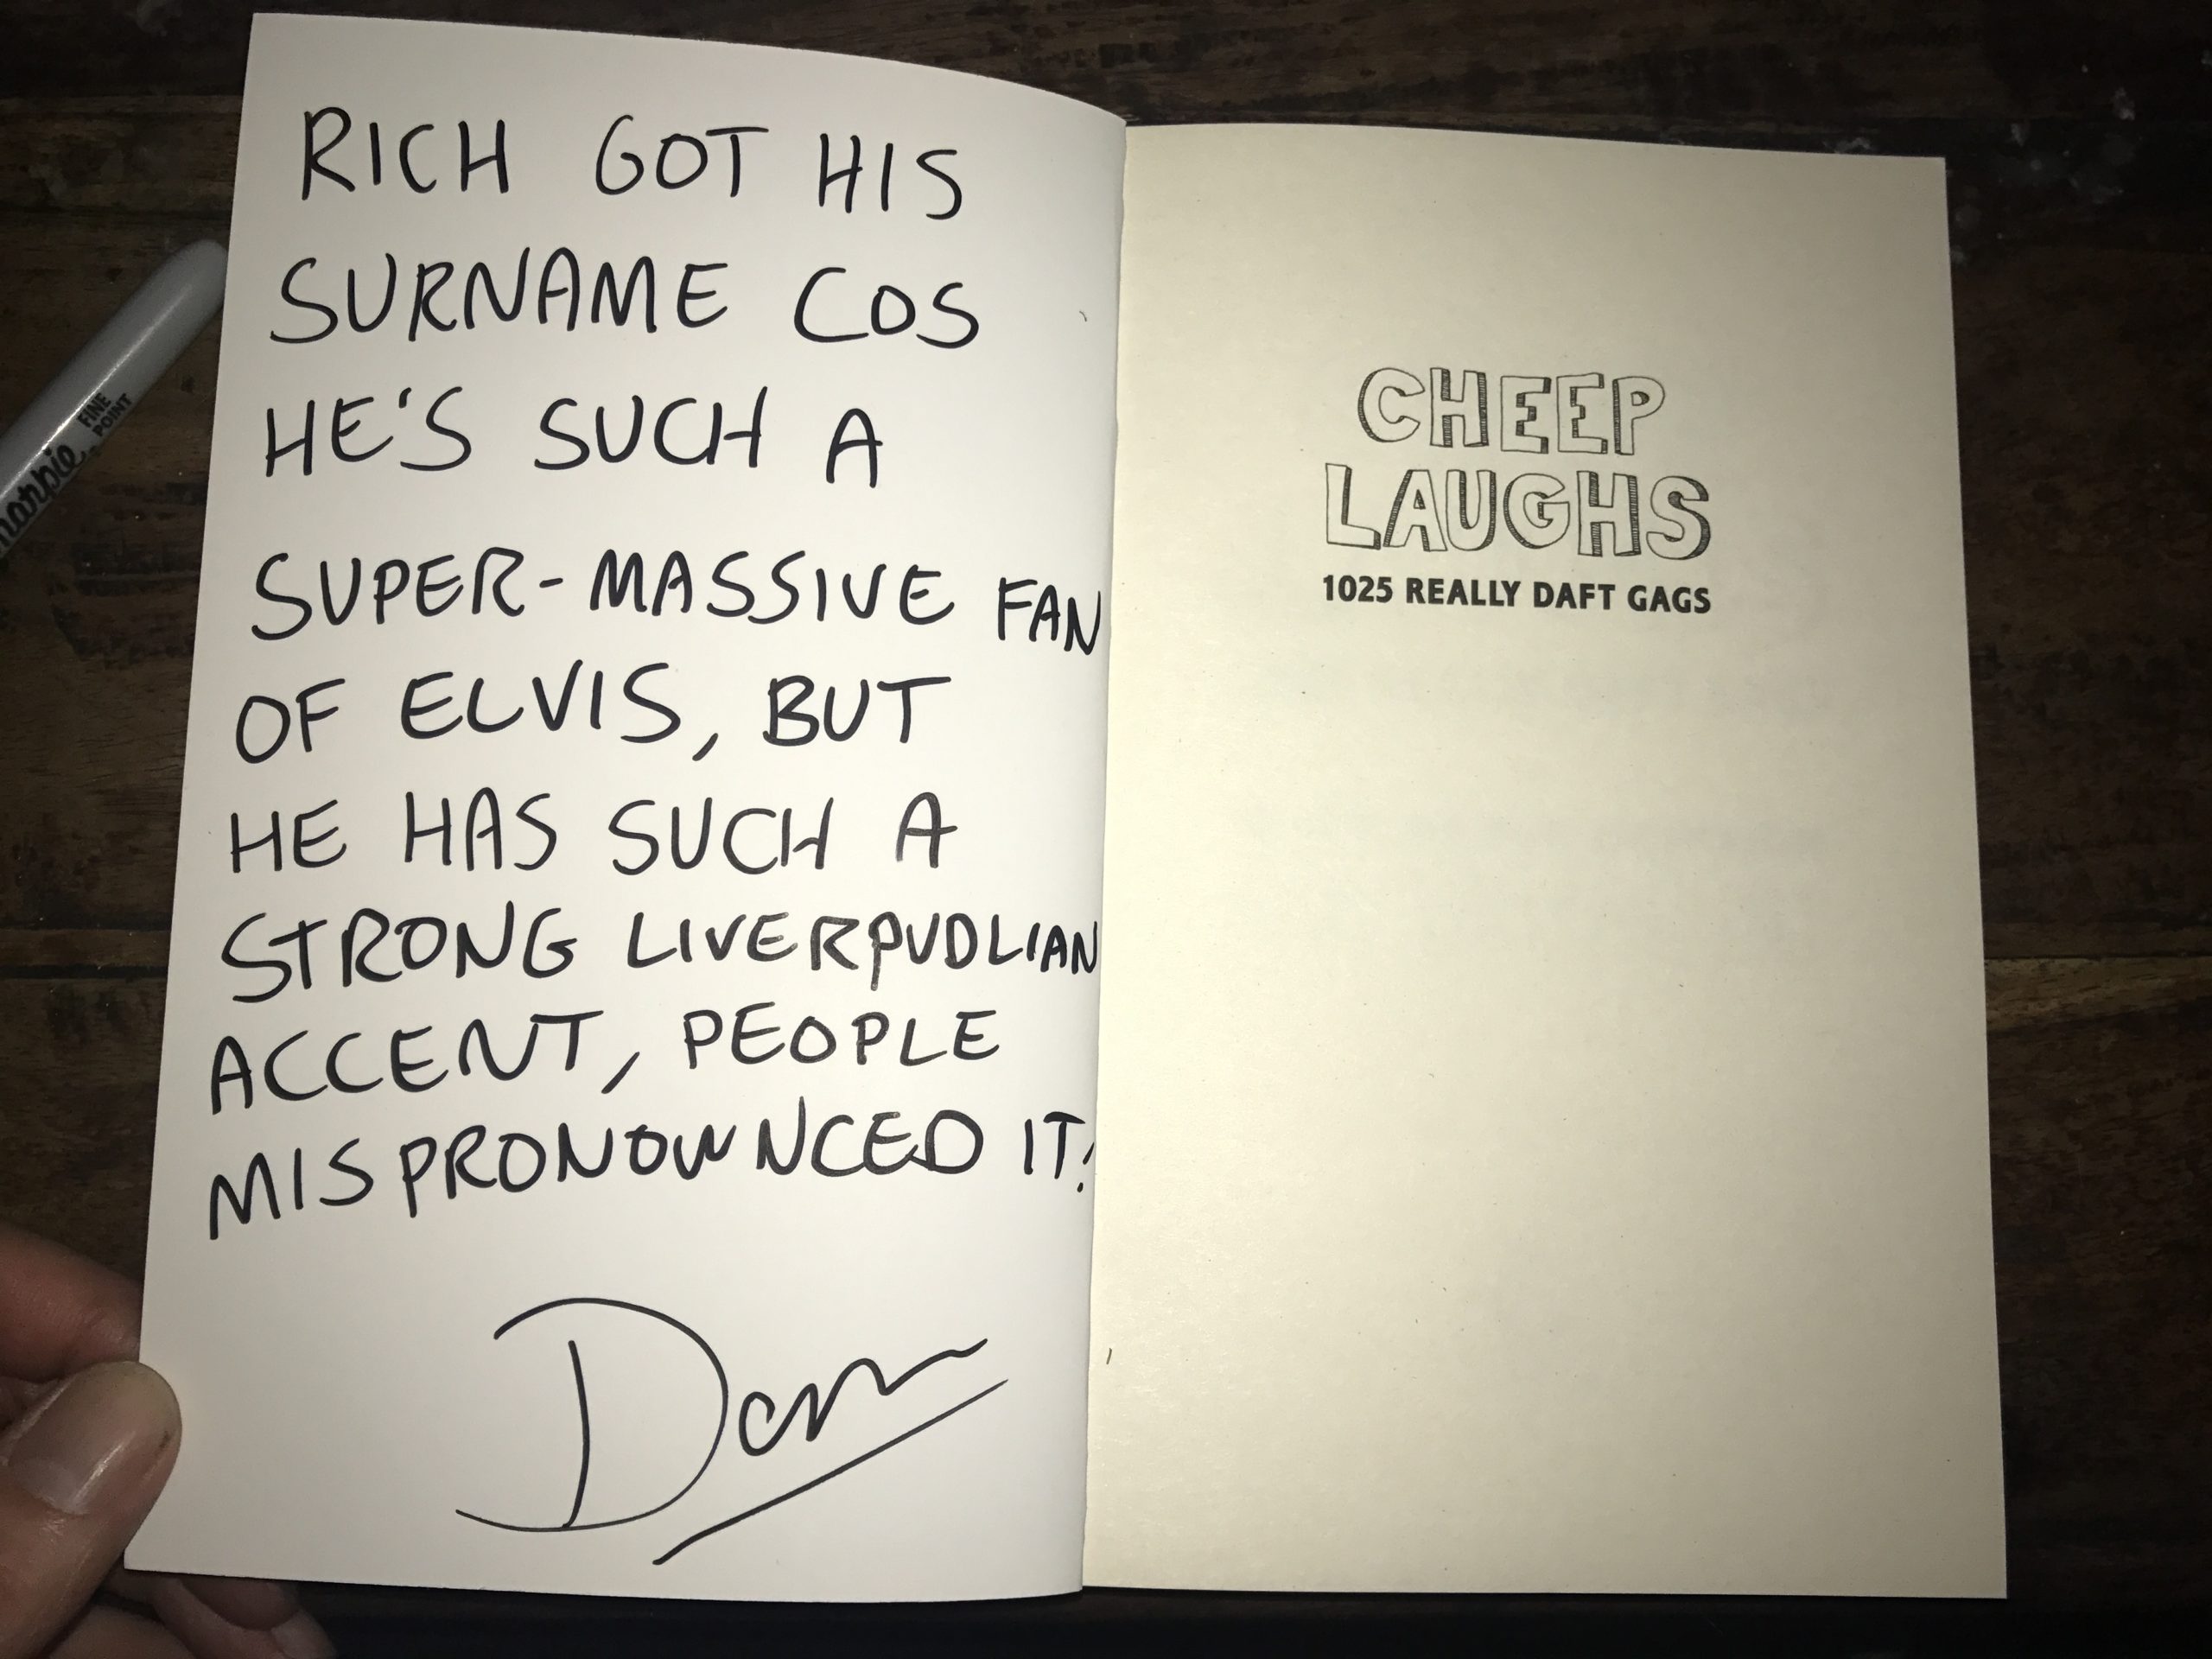 RICH GOT HIS
SURNAME COS
HE'S SUCH A
SUPER-MASSIVE FAN
OF ELVIS, BUT
HE HAS SUCH A
STRONG LIVERPUDLIAN
ACCENT, PEOPLE
MISPRONOWNCED IT!
Dan
CHEEP
LAUGHS
1025 REALLY DAFT GAGS
FINE
POINT